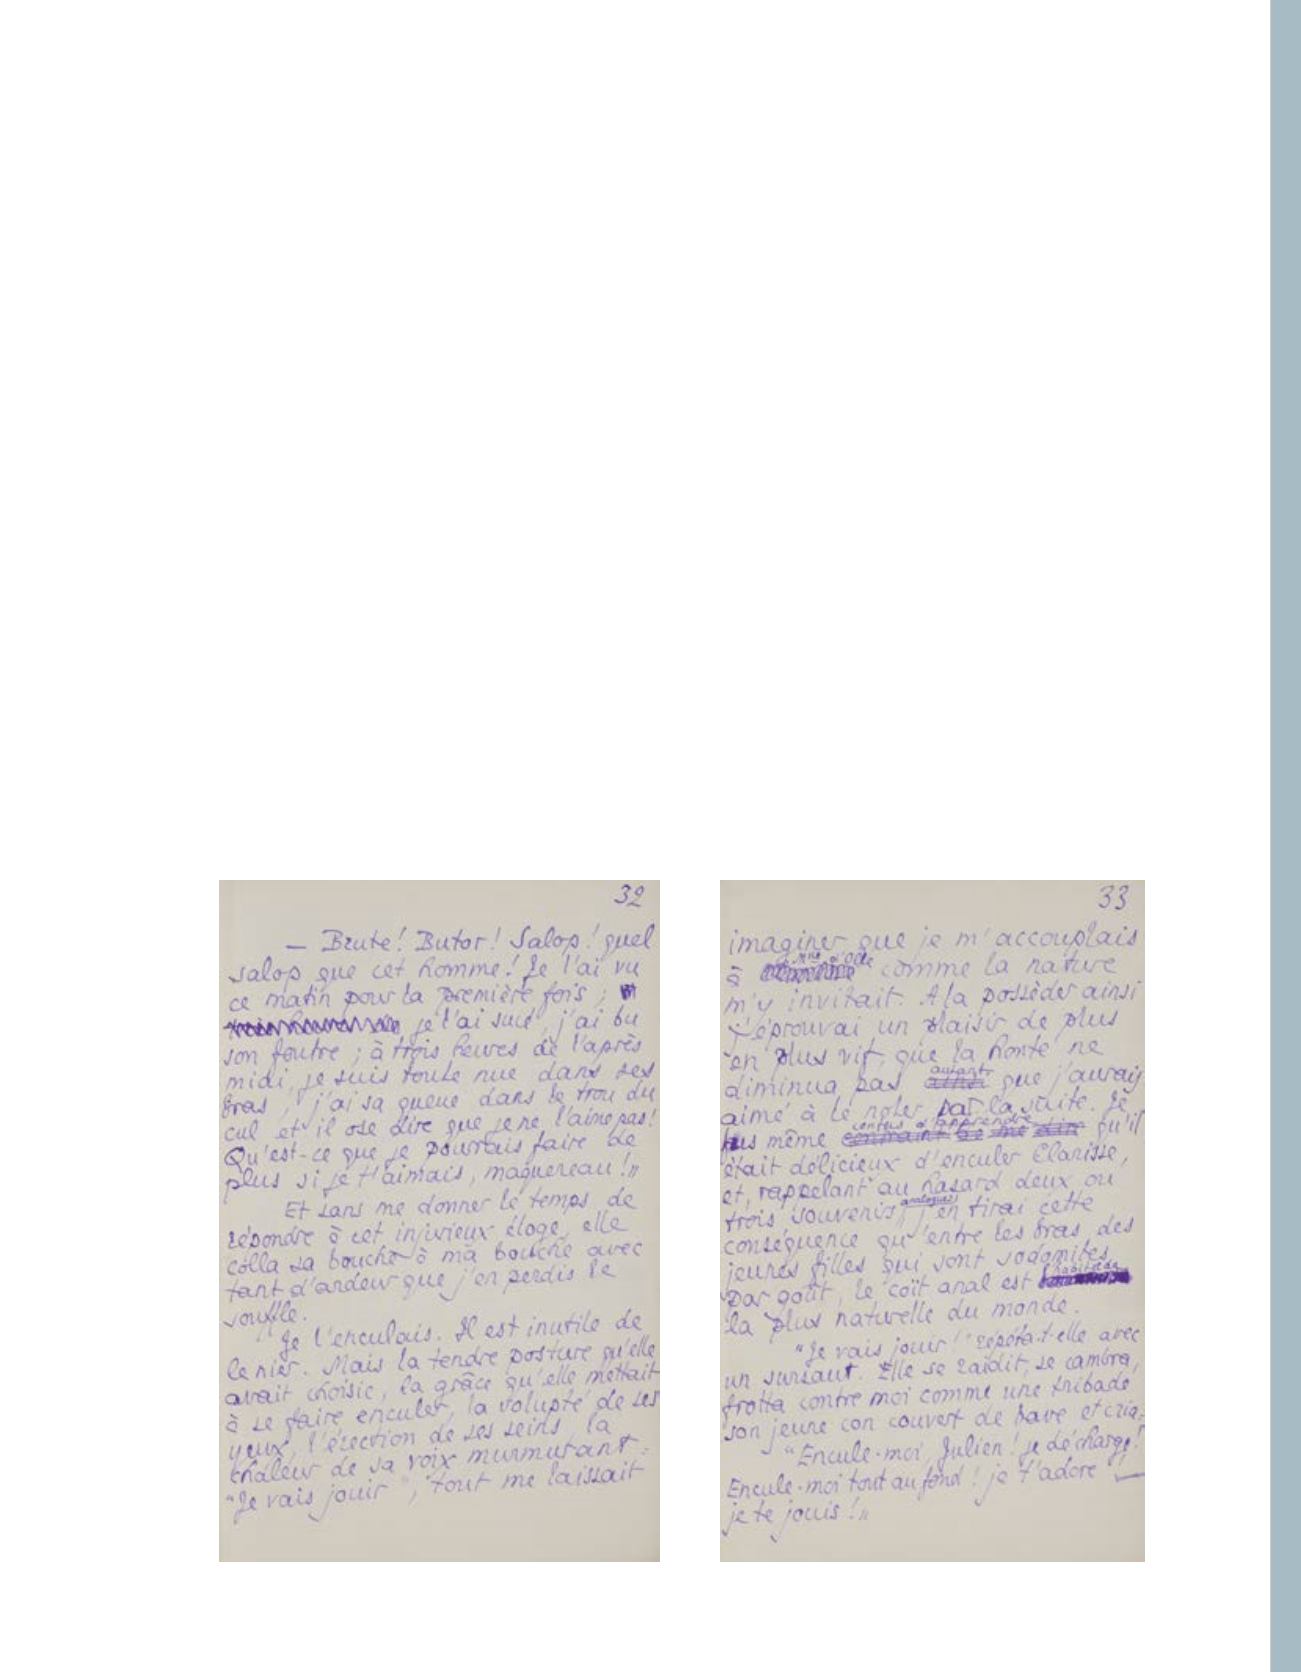 32
— Brute! Butor! Salop! quel
salop que cet homme! Je l'ai vu
ce matin pour la première fois ;
je l'ai sucé, j'ai bu
son foutre ; à trois heures de l'après
midi, je suis toute nue dans ses
bras, j'ai sa queue dans le trou du
cul et il ose dire que je ne l'aime pas!
Qu'est-ce que je pourrais faire de
plus si je t'aimais, maquereau!"
Et sans me donner le temps de
répondre à cet injurieux éloge, elle
colla sa bouche à ma bouche avec
tant d'ardeur que j'en perdis le
souffle.
Je l'enculais. Il est inutile de
le nier. Mais la tendre posture qu'elle
avait choisie, la grâce qu'elle mettait
à se faire enculer, la volupté de ses
yeux, l'érection de ses seins, la
chaleur de sa voix murmurant :
"Je vais jouir", tout me laissait
33
imaginer que je m'accouplais
à comme la nature
m'y invitait. A la posséder ainsi
j'éprouvai un plaisir de plus
en plus vif, que la honte ne
diminua pas autant que j'aurais
aimé à le noter par la suite. Je
fus même confus d'apprendre qu'il
était délicieux d'enculer Clarisse,
et, rappelant au hasard deux ou
trois souvenirs analogues, j'en tirai cette
conséquence qu'entre les bras des
jeunes filles qui sont sodomites
par goût, le coït anal est l'habitude
la plus naturelle du monde.
"Je vais jouir!" répéta-t-elle avec
un sursaut. Elle se raidit, se cambra,
frotta contre moi comme une tribade
son jeune con couvert de bave et cria:
"Encule-moi, Julien! je décharge!
Encule-moi tout au fond! je t'adore!! —
je te jouis!"